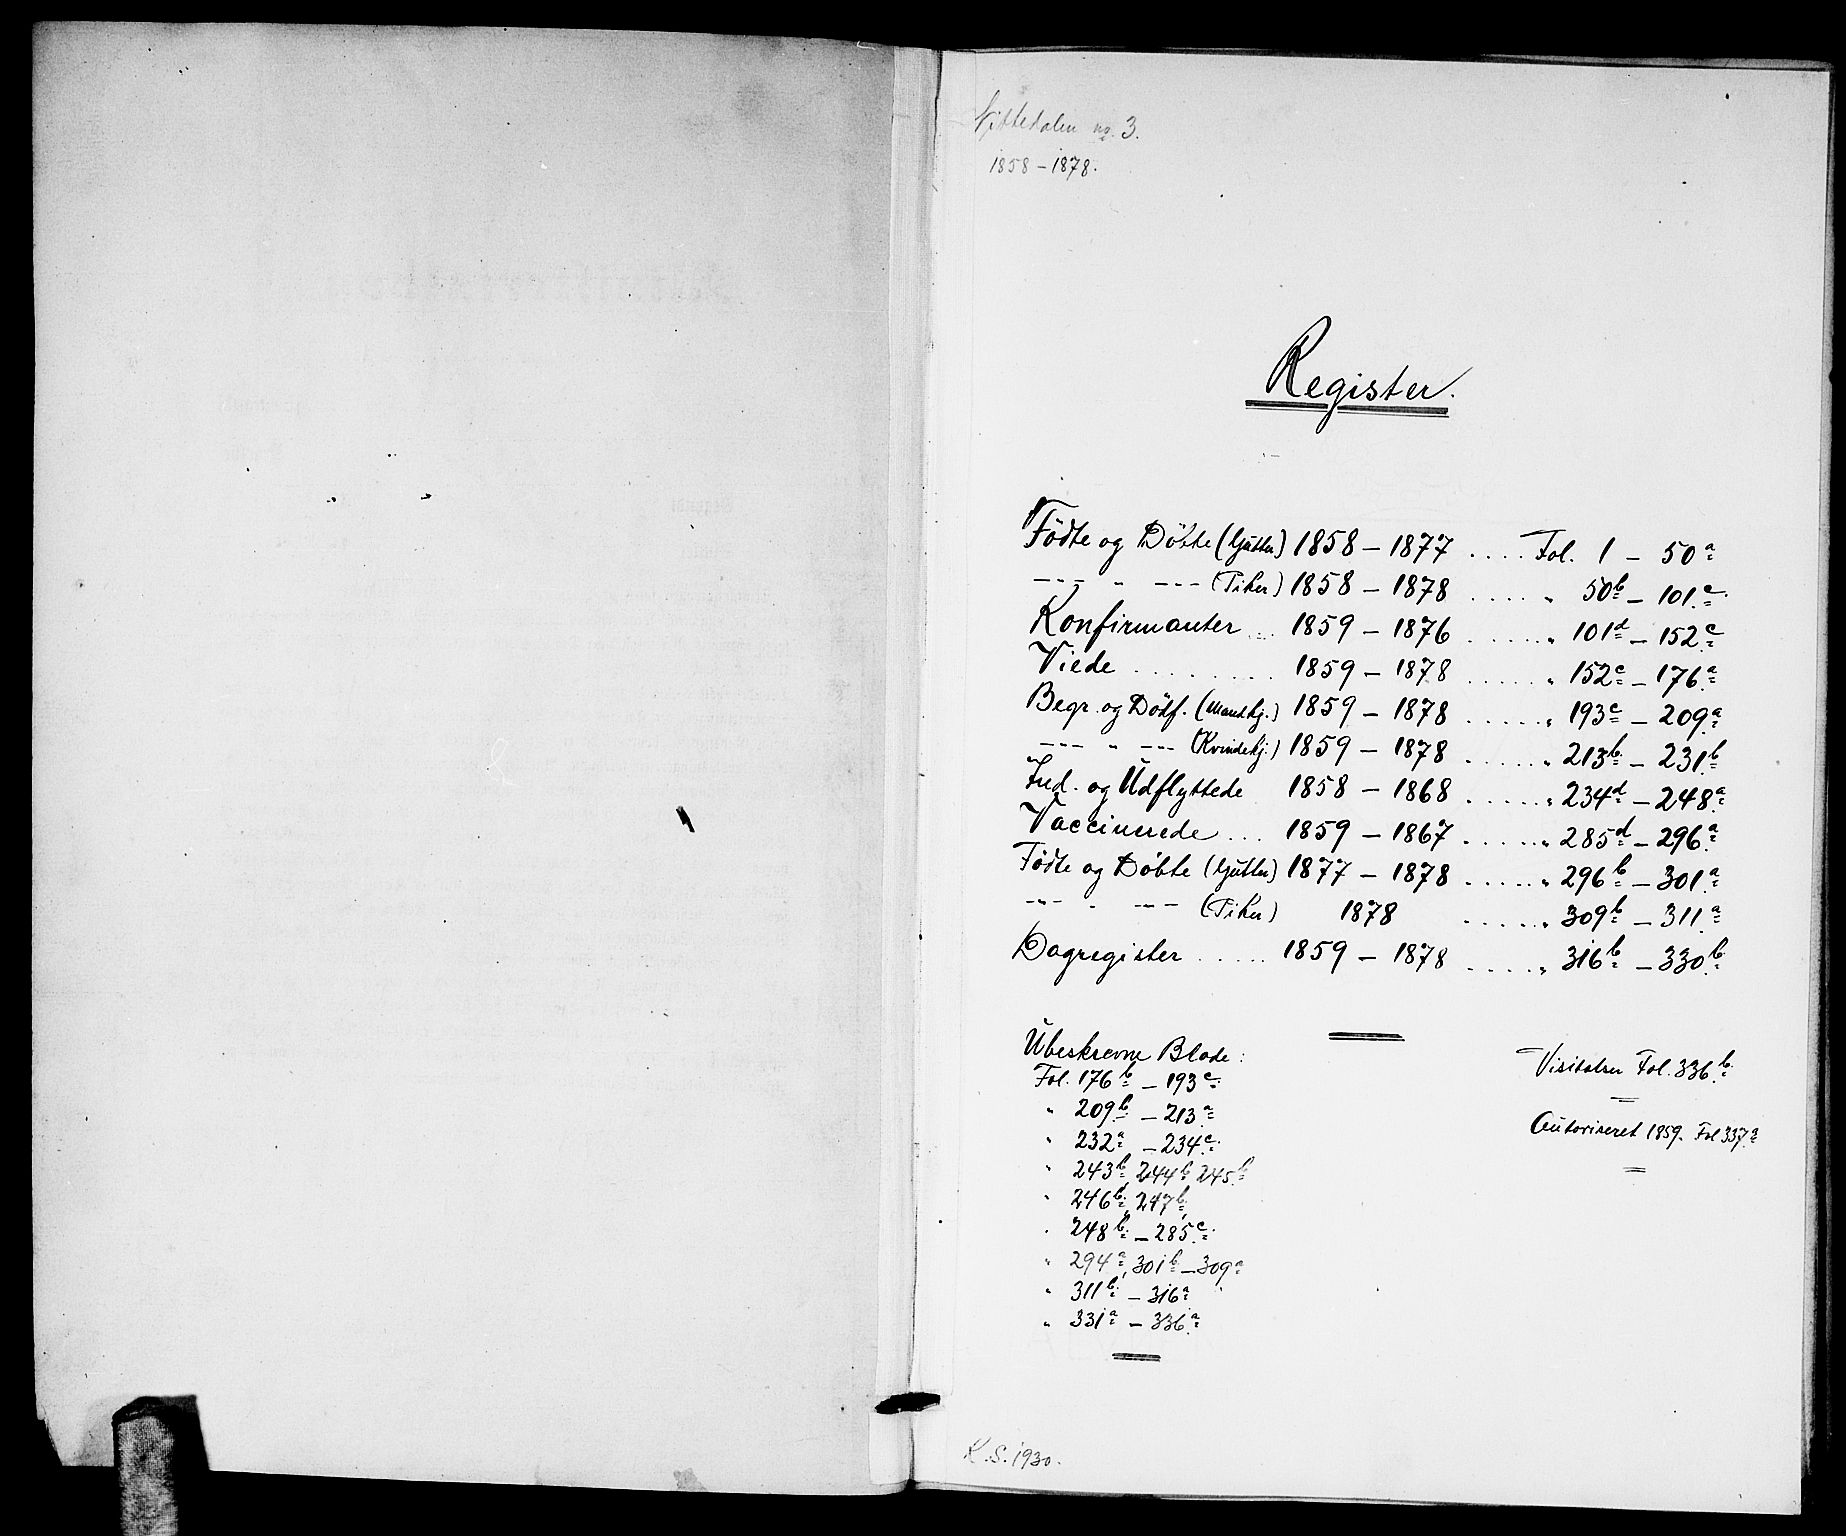 Nittedalen no. 3.
1858 – 1878.
Register.
Födte og Döbte (Gutter) 1858 – 1877 .... Fol. 1 – 50 a
--- " --- (Piker) 1858 – 1878 ..... " 50 b – 101 c.
Konfirmanter ... 1859 – 1876 ...... " 101 d – 152 c
Viede ........ 1859 – 1878 ...... " 152 c – 176 a
Begr. og Dödf. (Mandkj.) 1859 – 1878 ...... " 193 c – 209 a
--- " --- (Kvindekj.) 1859 – 1878 ...... " 213 b – 231 b
Ind. og Udflyttede 1858 – 1868 ...... " 234 d – 248 a
Vaccinerede ... 1859 – 1867 ...... " 285 d – 296 a
Födte og Döbte (Gutter) 1877 – 1878 ...... " 296 b – 301 a
--- " --- (Piker) 1878 ...... " 309 b – 311 a
Dagregister ..... 1859 – 1878 ..... " 316 b – 330 b
Ubeskrevne Blade:
Fol. 176 b – 193 c
" 209 b – 213 a
" 232 a – 234 c
" 243 b, 244 b, 245 b
" 246 b, 247 b,
" 248 b – 285 c
" 294 a, 301 b – 309 a
" 311 b – 316 a
" 331 a – 336 a
Visitatser Fol. 336 b.
Autoriseret 1859. Fol 337 a
K. S. 1930.